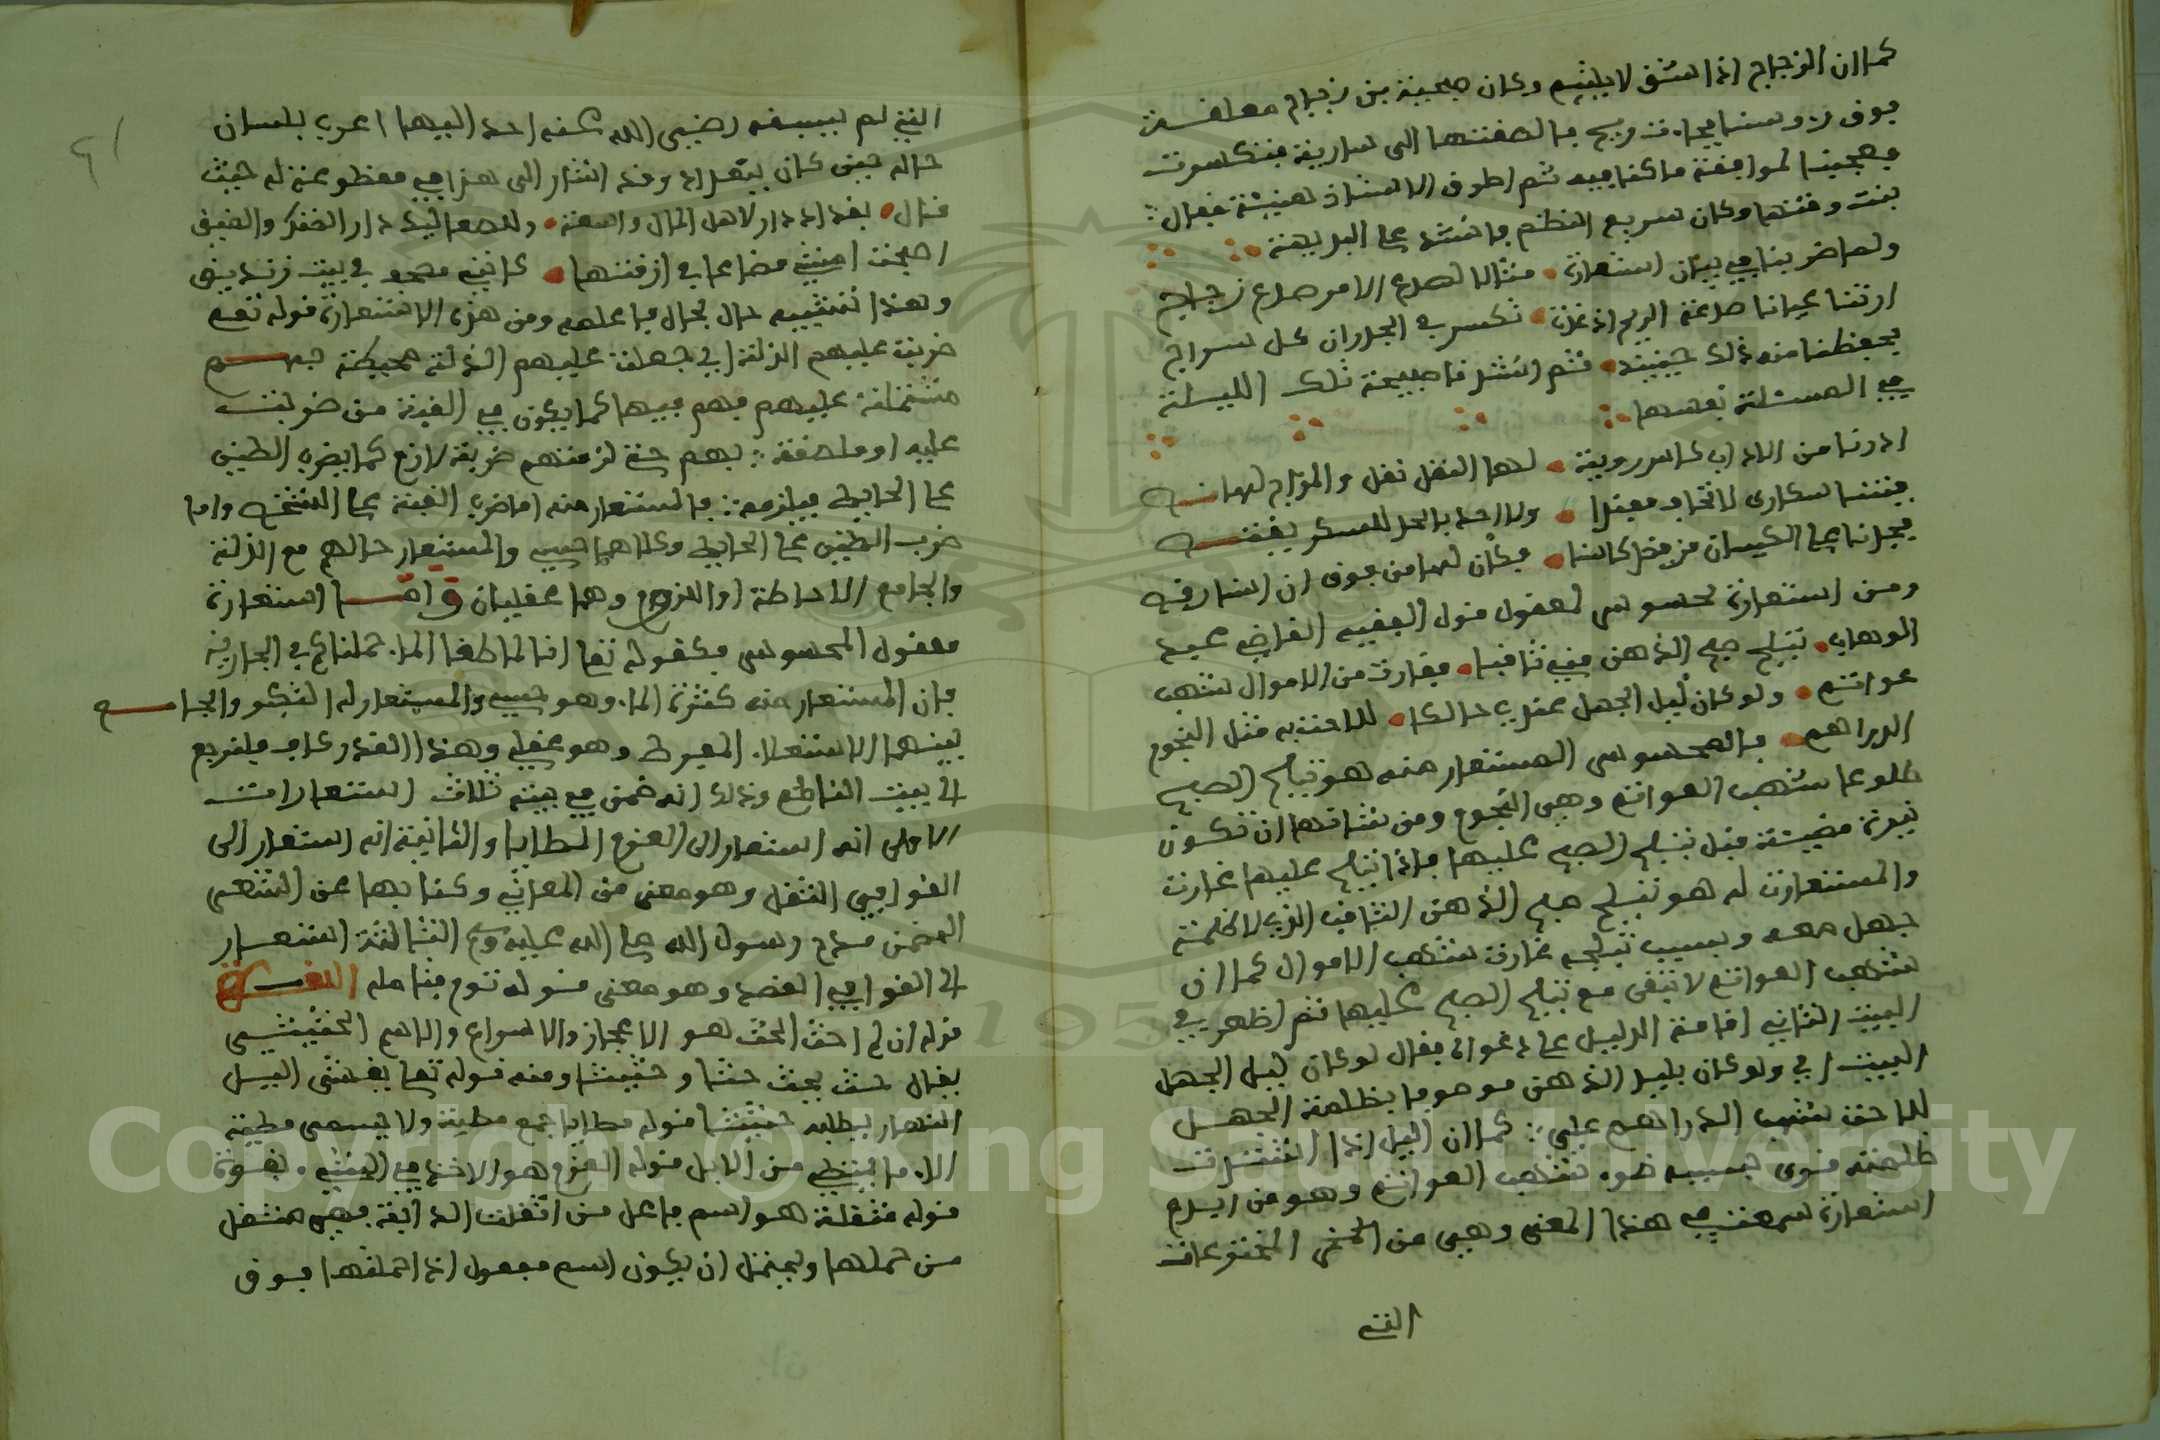 كما ان الزجاج اذا انشق لا يلتيم وكان صحبية من زجاج معلقة
فوق روسنا فجاءت ريح فالصقتها الى سارية فتكسرت
فعجبنا لموافقة ما كنا فيه ثم اطرق الاستاذ هنيئة فقال
بنت وقتها وكان سريع النظم فانشد على البديهة
ولما ضربنا في بيان استعارة مثالا لصدع الامر صدع زجاج
ارتنا عيانا صدعة الريح اذ غدت تكسر في الجدران كل سراج
فحفظنا منه ذلك حينيذ ثم انشدنا صبيحة تلك الليلة
في المسئلة نفسها
ادرنا من الاداب كاس روية لها النقل نقل والمزاج لها
فبتنا سكارى لا نخاف مفندا ولا احد بالحد للسكر يقتص
فجدنا على الكيسان من فضل كاسنا فكان لها من فوق ان
ومن استعارة محسوس لمعقول قول الفقيه القاضي عبد
الوهاب تبلج صبح الذهن مني ثاقبا فغارت من الاموال شهب
عواتم ولو كان ليل الجهل عندي حالكا للاحت به مثل النجوم
الدراهم فالمحسوس المستعار منه هو تبلج الصبح
طلوعا شهب العواتم وهي النجوم ومن شانها ان تكون
نيرة مضيئة قبل تبلج الصبح عليها فاذا تبلج عليها غارت
والمستعارة له هو تبلج صبح الذهن الثاقب الذي لا ظلمة
جهل معه وبسبب تبلجه غارت شهب الاموال كما ان
شهب العواتم لا تبقى مع تبلج الصبح عليها ثم اظهر في
البيت الثاني اقامة الدليل على دعواه فقال لو كان ليل الجهل
البيت اي ولو كان بليد الذهن موصوفا بظلمة الجهل
للاحت شهب الدراهم عليه كما ان الليل اذا انتشرت
ظلمته قوى بسببه ضوء شهب العواتم وهو من ابدع
استعارة سمعت في هذا المعنى وهي من المخترعات
التي
التي لم يسبقه رضي الله عنه احد اليها اعرب بلسان
حاله حين كان ببغداد وقد اشار الى هذا في مقطوعة له حيث
قال بغداد دار لاهل المال واسعة وللصعاليك دار الضنك والضيق
اصبحت امشي مضاعا في ازقتها كانني مصحف في بيت زنديق
وهذا تشبيه حال بحال فاعلمه ومن هذه الاستعارة قوله تعلى
ضربت عليهم الذلة اي جعلت عليهم الذلة محيطة بهم
مشتملة عليهم فهم فيها كما يكون في القبة من ضربت
عليه او ملصقة بهم حتى لزمتهم ضربة لازم كما يضرب الطين
على الحايط فيلزمه فالمستعار منه اما ضرب القبة على الشخص واما
ضرب الطين على الحايط وكلاهما حسي والمستعار حالهم مع الذلة
والجامع الاحاطة او اللزوم وهما عقليان واما استعارة
معقول المحسوس فكقوله تعالى انا لما طغا الما حملناكم في الجارية
فان المستعار منه كثرة الما وهو حسي والمستعار له التكبر والجامع
بينهما الاستعلاء المفرط وهو عقلي وهذا القدر كاف فلنرجع
الى بيت الناظم وذلك انه ضمن في بيته ثلاث استعارات
الاولى انه استعار الى العزم المطايا والثانية انه استعار الى
القوافي الثقل وهو معنى من المعاني وكنا بها عن الشعر
المضمن مدح رسول الله صلى الله عليه وسلم الثالثة استعار
الى القوافي القصد وهو معنى قوله تؤم فتامله
قوله ان لم احث الحث هو الاعجاز والاسراع والاسم الحثيثى
يقال حث يحث حثا وحثيثا ومنه قوله تعالى يغشى الليل
النهار يطلبه حثيثا قوله مطايا جمع مطية ولا يسمى مطية
الا ما يمتطى من الابل قوله العزم هو الاخذ في الشيء بقوة
قوله مثقلة هو اسم فاعل من اثقلت الدابة فهي مثقل
من حملها ويحتمل ان يكون اسم مفعول اذا حملتها فوق